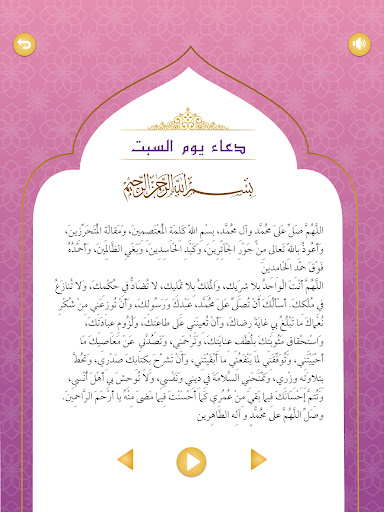 دعاء يوم السبت
بِسْمِ اللهِ الرَّحْمنِ الرَّحِيمِ
اللهُمَّ صَلِّ عَلىٰ مُحَمَّدٍ وآلِ مُحَمَّدٍ، بِسْمِ اللهِ كَلِمَةِ الْمُعْتَصِمِينَ، وَمَقَالَةِ الْمُتَحَرِّزِينَ،
وَأَعُوذُ بِاللهِ تَعَالىٰ مِنْ جَوْرِ الْجَائِرِينَ، وَكَيْدِ الْحَاسِدِينَ، وَبَغْيِ الظَّالِمِينَ، وَأَحْمَدُهُ
فَوْقَ حَمْدِ الْحَامِدِينَ
اللهُمَّ أَنْتَ الْوَاحِدُ بِلا شَرِيكٍ، وَالْمَلِكُ بِلا تَمْلِيكٍ، لا تُضَادُّ فِي حُكْمِكَ، وَلا تُنَازَعُ
فِي مُلْكِكَ. أَسْأَلُكَ أَنْ تُصَلِّيَ عَلىٰ مُحَمَّدٍ، عَبْدِكَ وَرَسُولِكَ، وَأَنْ تُوزِعَنِي مِنْ شُكْرِ
نُعْمَاكَ مَا تَبْلُغُ بِي غَايَةَ رِضَاكَ، وَأَنْ تُعِينَنِي عَلىٰ طَاعَتِكَ، وَلُزُومِ عِبَادَتِكَ،
وَاسْتِحْقَاقِ مَثُوبَتِكَ بِلُطْفِ عِنَايَتِكَ، وَتَرْحَمَنِي، وَتَصُدَّنِي عَنْ مَعَاصِيكَ مَا
أَحْيَيْتَنِي، وَتُوَفِّقَنِي لِمَا يَنْفَعُنِي مَا أَبْقَيْتَنِي، وَأَنْ تَشْرَحَ بِكِتَابِكَ صَدْرِي، وَتَحُطَّ
بِتِلاوَتِهِ وِزْرِي، وَتَمْنَحَنِي السَّلامَةَ فِي دِينِي وَنَفْسِي، وَلا تُوحِشَ بِي أَهْلَ أُنْسِي،
وَتُتِمَّ إِحْسَانَكَ فِيمَا بَقِيَ مِنْ عُمْرِي كَمَا أَحْسَنْتَ فِيمَا مَضىٰ مِنْهُ يَا أَرْحَمَ الرَّاحِمِينَ.
وصَلِّ اللهُمَّ عَلىٰ مُحَمَّدٍ و آلِهِ الطّاهِرِين